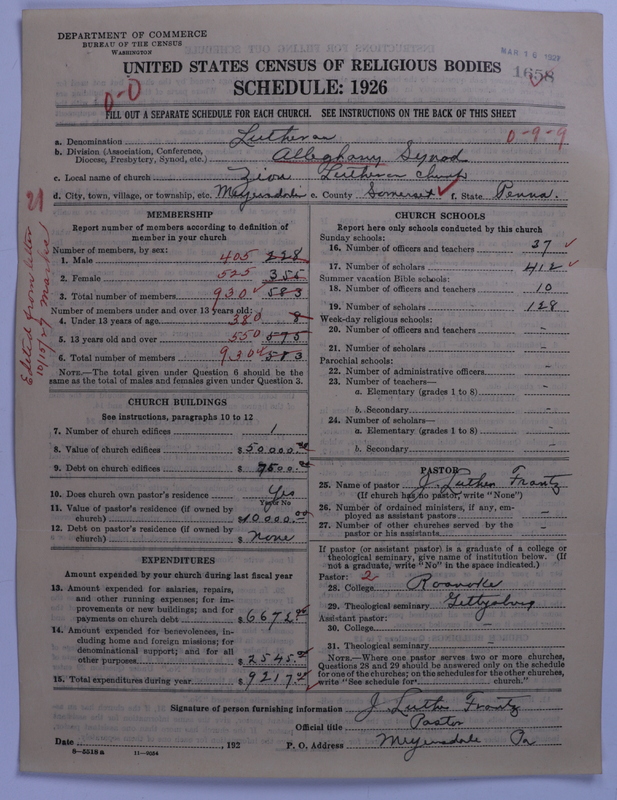 DEPARTMENT OF COMMERCE
BUREAU OF THE CENSUS
WASHINGTON
MAR 16 1927
1658
UNITED STATES CENSUS OF RELIGIOUS BODIES
SCHEDULE: 1926
0-0
FILL OUT A SEPARATE SCHEDULE FOR EACH CHURCH. SEE INSTRUCTIONS ON THE BACK OF THIS SHEET
a. Denomination Lutheran 0-9-9
b. Division (Association, Conference, Diocese, Presbytery, Synod, etc.) Alleghany Synod
c. Local name of church Zion Lutheran Church
d. City, town, village, or township, etc. Meyersdale e. County Somerset f. State Penna.
Edited from letter 10/15/27 Marks
MEMBERSHIP
Report number of members according to definition of
member in your church
Number of members, by sex:
1. Male 405 228
2. Female 525 355
3. Total number of members 930 583
Number of members under and over 13 years old:
4. Under 13 years of age 380 8
5. 13 years old and over 550 575
6. Total number of members 930 583
NOTE.—The total given under Question 6 should be the
same as the total of males and females given under Question 3.
CHURCH BUILDINGS
See instructions, paragraphs 10 to 12
7. Number of church edifices 1
8. Value of church edifices $50000.00
9. Debt on church edifices $ 7500.00
10. Does church own pastor's residence Yes
Yes or No
11. Value of pastor's residence (if owned by
church) $10000.00
12. Debt on pastor's residence (if owned by
church) $ None
EXPENDITURES
Amount expended by your church during last fiscal year
13. Amount expended for salaries, repairs,
and other running expenses; for im-
provements or new buildings; and for
payments on church debt $6672.00
14. Amount expended for benevolences, in-
cluding home and foreign missions; for
denominational support; and for all
other purposes $2545.00
15. Total expenditures during year $9217.00
CHURCH SCHOOLS
Report here only schools conducted by this church
Sunday schools:
16. Number of officers and teachers 37
17. Number of scholars 412
Summer vacation Bible schools:
18. Number of officers and teachers 10
19. Number of scholars 128
Week-day religious schools:
20. Number of officers and teachers -
21. Number of scholars -
Parochial schools:
22. Number of administrative officers -
23. Number of teachers—
a. Elementary (grades 1 to 8) -
b. Secondary -
24. Number of scholars—
a. Elementary (grades 1 to 8) -
b. Secondary -
PASTOR
25. Name of pastor J. Luther Frantz
(If church has no pastor, write "None")
26. Number of ordained ministers, if any, em-
ployed as assistant pastors -
27. Number of other churches served by the
pastor or his assistants -
If pastor (or assistant pastor) is a graduate of a college or
theological seminary, give name of institution below. (If
not a graduate, write "No" in the space indicated.)
Pastor: 2
28. College Roanoke
29. Theological seminary Gettysburg
Assistant pastor:
30. College -
31. Theological seminary -
NOTE.—Where one pastor serves two or more churches,
Questions 28 and 29 should be answered only on the schedule
for one of the churches; on the schedules for the other churches,
write "See schedule for church."
Signature of person furnishing information J. Luther Frantz
Official title Pastor
Date , 192 P. O. Address Meyersdale Pa
8—5518 a 11—9034